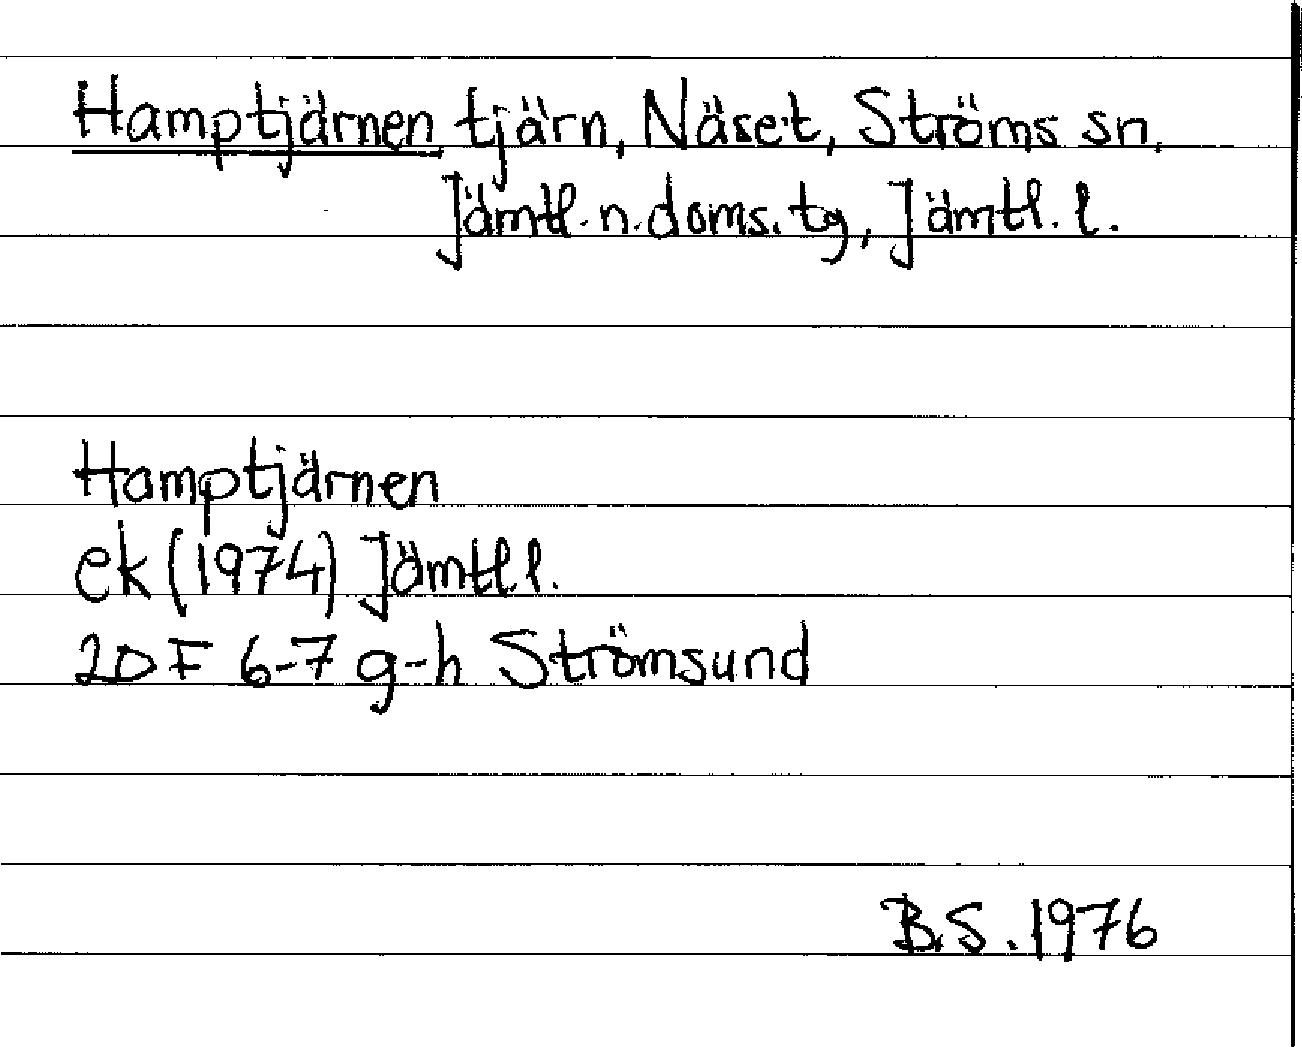 Hamptjärnen tjärn, Näset, Ströms sn.
Jämtl. n. doms. tg, Jämtl. l.
Hamptjärnen
ek (1974) Jämtl. l.
20 F 6-7 g-h Strömsund
B.S. 1976